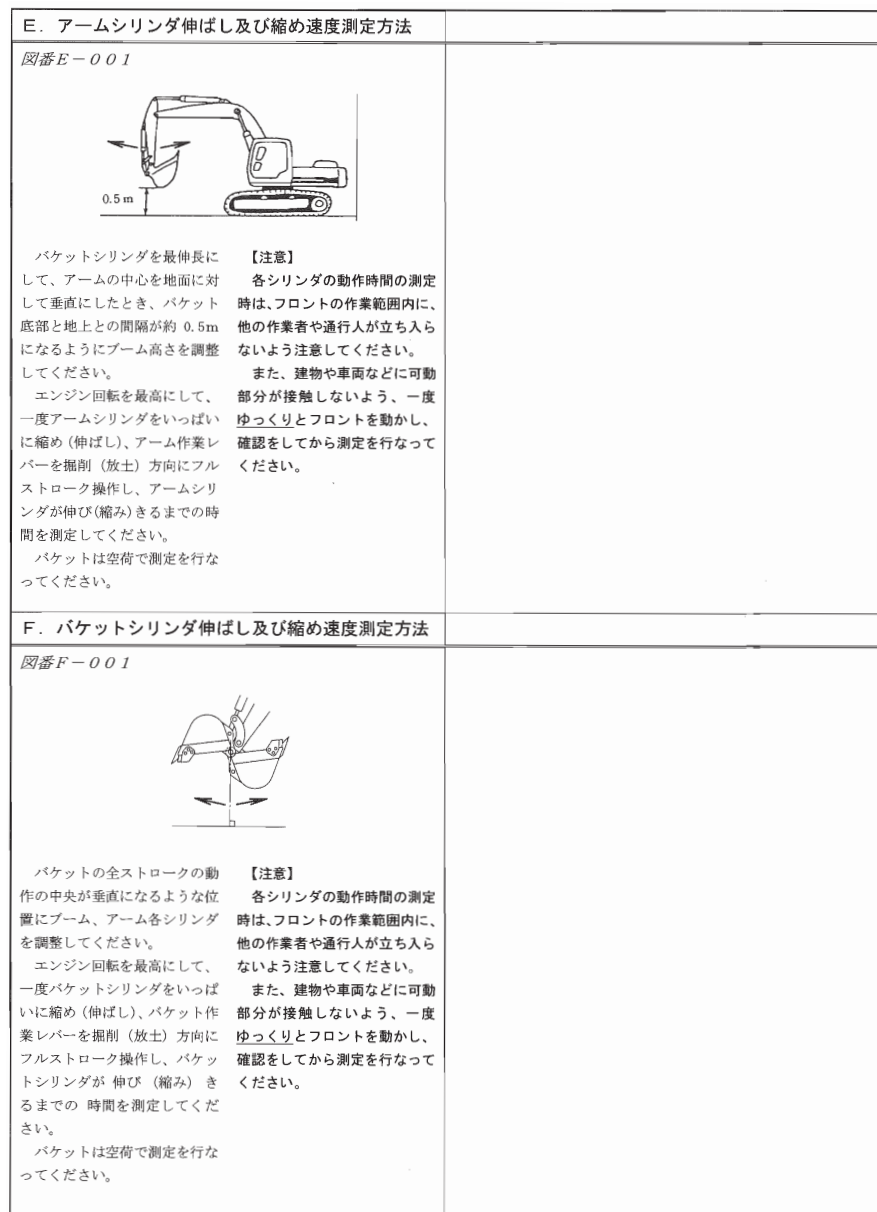 E．アームシリンダ伸ばし及び縮め速度測定方法
図番E－001
0.5m
バケットシリンダを最伸長に
して、アームの中心を地面に対
して垂直にしたとき、バケット
底部と地上との間隔が約 0.5m
になるようにブーム高さを調整
してください。
エンジン回転を最高にして、
一度アームシリンダをいっぱい
に縮め（伸ばし）、アーム作業レ
バーを掘削（放土）方向にフル
ストローク操作し、アームシリ
ンダが伸び（縮み）きるまでの時
間を測定してください。
バケットは空荷で測定を行な
ってください。
【注意】
各シリンダの動作時間の測定
時は、フロントの作業範囲内に、
他の作業者や通行人が立ち入ら
ないよう注意してください。
また、建物や車両などに可動
部分が接触しないよう、一度
ゆっくりとフロントを動かし、
確認をしてから測定を行なって
ください。
F．バケットシリンダ伸ばし及び縮め速度測定方法
図番F－001
バケットの全ストロークの動
作の中央が垂直になるような位
置にブーム、アーム各シリンダ
を調整してください。
エンジン回転を最高にして、
一度バケットシリンダをいっぱ
いに縮め（伸ばし）、バケット作
業レバーを掘削（放土）方向に
フルストローク操作し、バケッ
トシリンダが 伸び （縮み） き
るまでの 時間を測定してくだ
さい。
バケットは空荷で測定を行な
ってください。
【注意】
各シリンダの動作時間の測定
時は、フロントの作業範囲内に、
他の作業者や通行人が立ち入ら
ないよう注意してください。
また、建物や車両などに可動
部分が接触しないよう、一度
ゆっくりとフロントを動かし、
確認をしてから測定を行なって
ください。